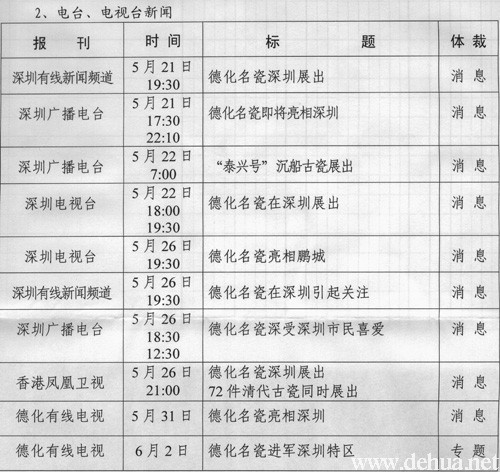 2、电台、电视台新闻
报 刊 时 间 标 题 体 裁
深圳有线新闻频道 5 月 21 日 19:30 德化名瓷深圳展出 消 息
深圳广播电台 5 月 21 日 17:30 22:10 德化名瓷即将亮相深圳 消 息
深圳广播电台 5 月 22 日 7:00 “泰兴号”沉船古瓷展出 消 息
深圳电视台 5 月 22 日 18:00 19:30 德化名瓷在深圳展出 消 息
深圳电视台 5 月 26 日 19:30 德化名瓷亮相鹏城 消 息
深圳有线新闻频道 5 月 26 日 19:30 德化名瓷在深圳引起关注 消 息
深圳广播电台 5 月 26 日 18:30 12:30 德化名瓷深受深圳市民喜爱 消 息
香港凤凰卫视 5 月 26 日 21:00 德化名瓷深圳展出 72 件清代古瓷同时展出 消 息
德化有线电视 5 月 31 日 德化名瓷亮相深圳 消 息
德化有线电视 6 月 2 日 德化名瓷进军深圳特区 专 题
www.dehua.net